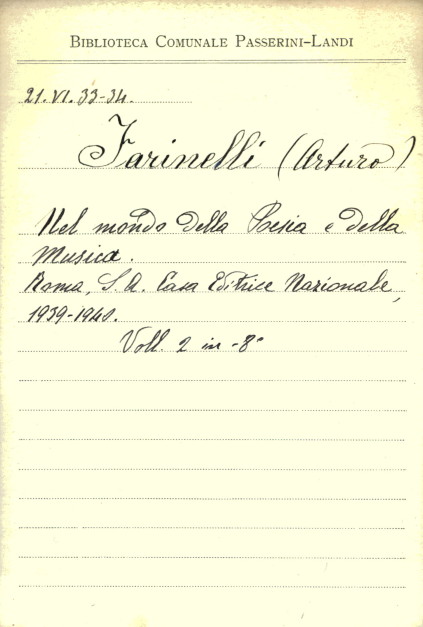 BIBLIOTECA COMUNALE PASSERINI-LANDI
21. VI. 33-34.
Farinelli (Arturo)
Nel mondo della Poesia e della
Musica.
Roma, S. A. Casa Editrice Nazionale,
1939-1940.
Voll. 2 in -8°